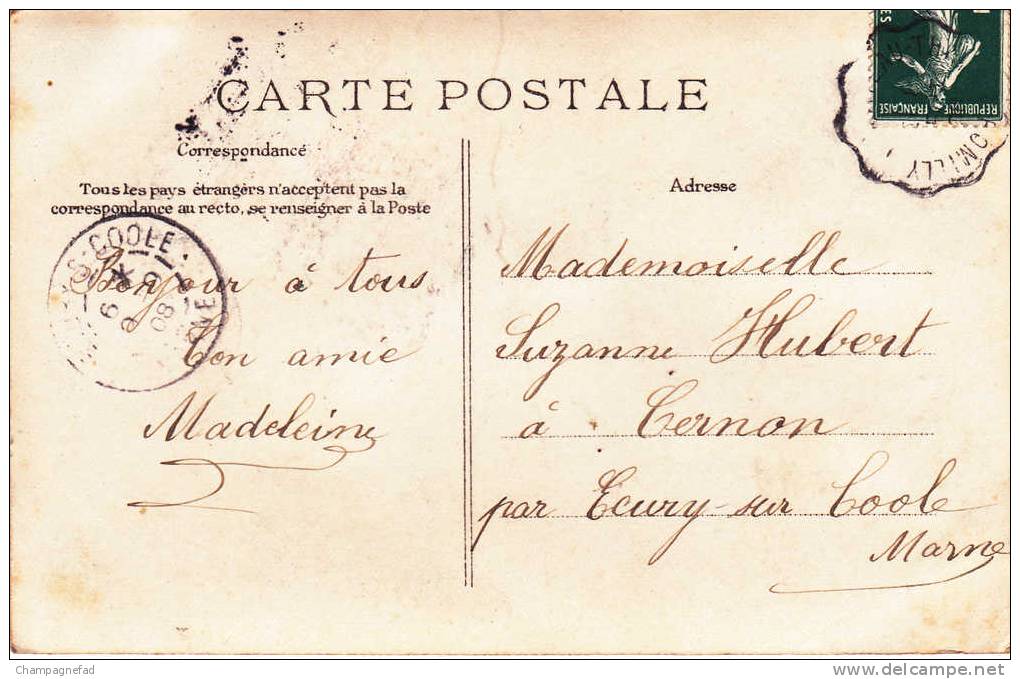 CARTE POSTALE
Correspondance
Tous les pays étrangers n'acceptent pas la
correspondance au recto, se renseigner à la Poste
Bonjour à tous
Ton amie
Madeleine
Adresse
Mademoiselle
Suzanne Hubert
à Cernon
par Ecury-sur Coole
Marne
REPUBLIQUE FRANCAISE
S-COOLE
08
ROMILLY
Champagnefad
www.delcampe.net